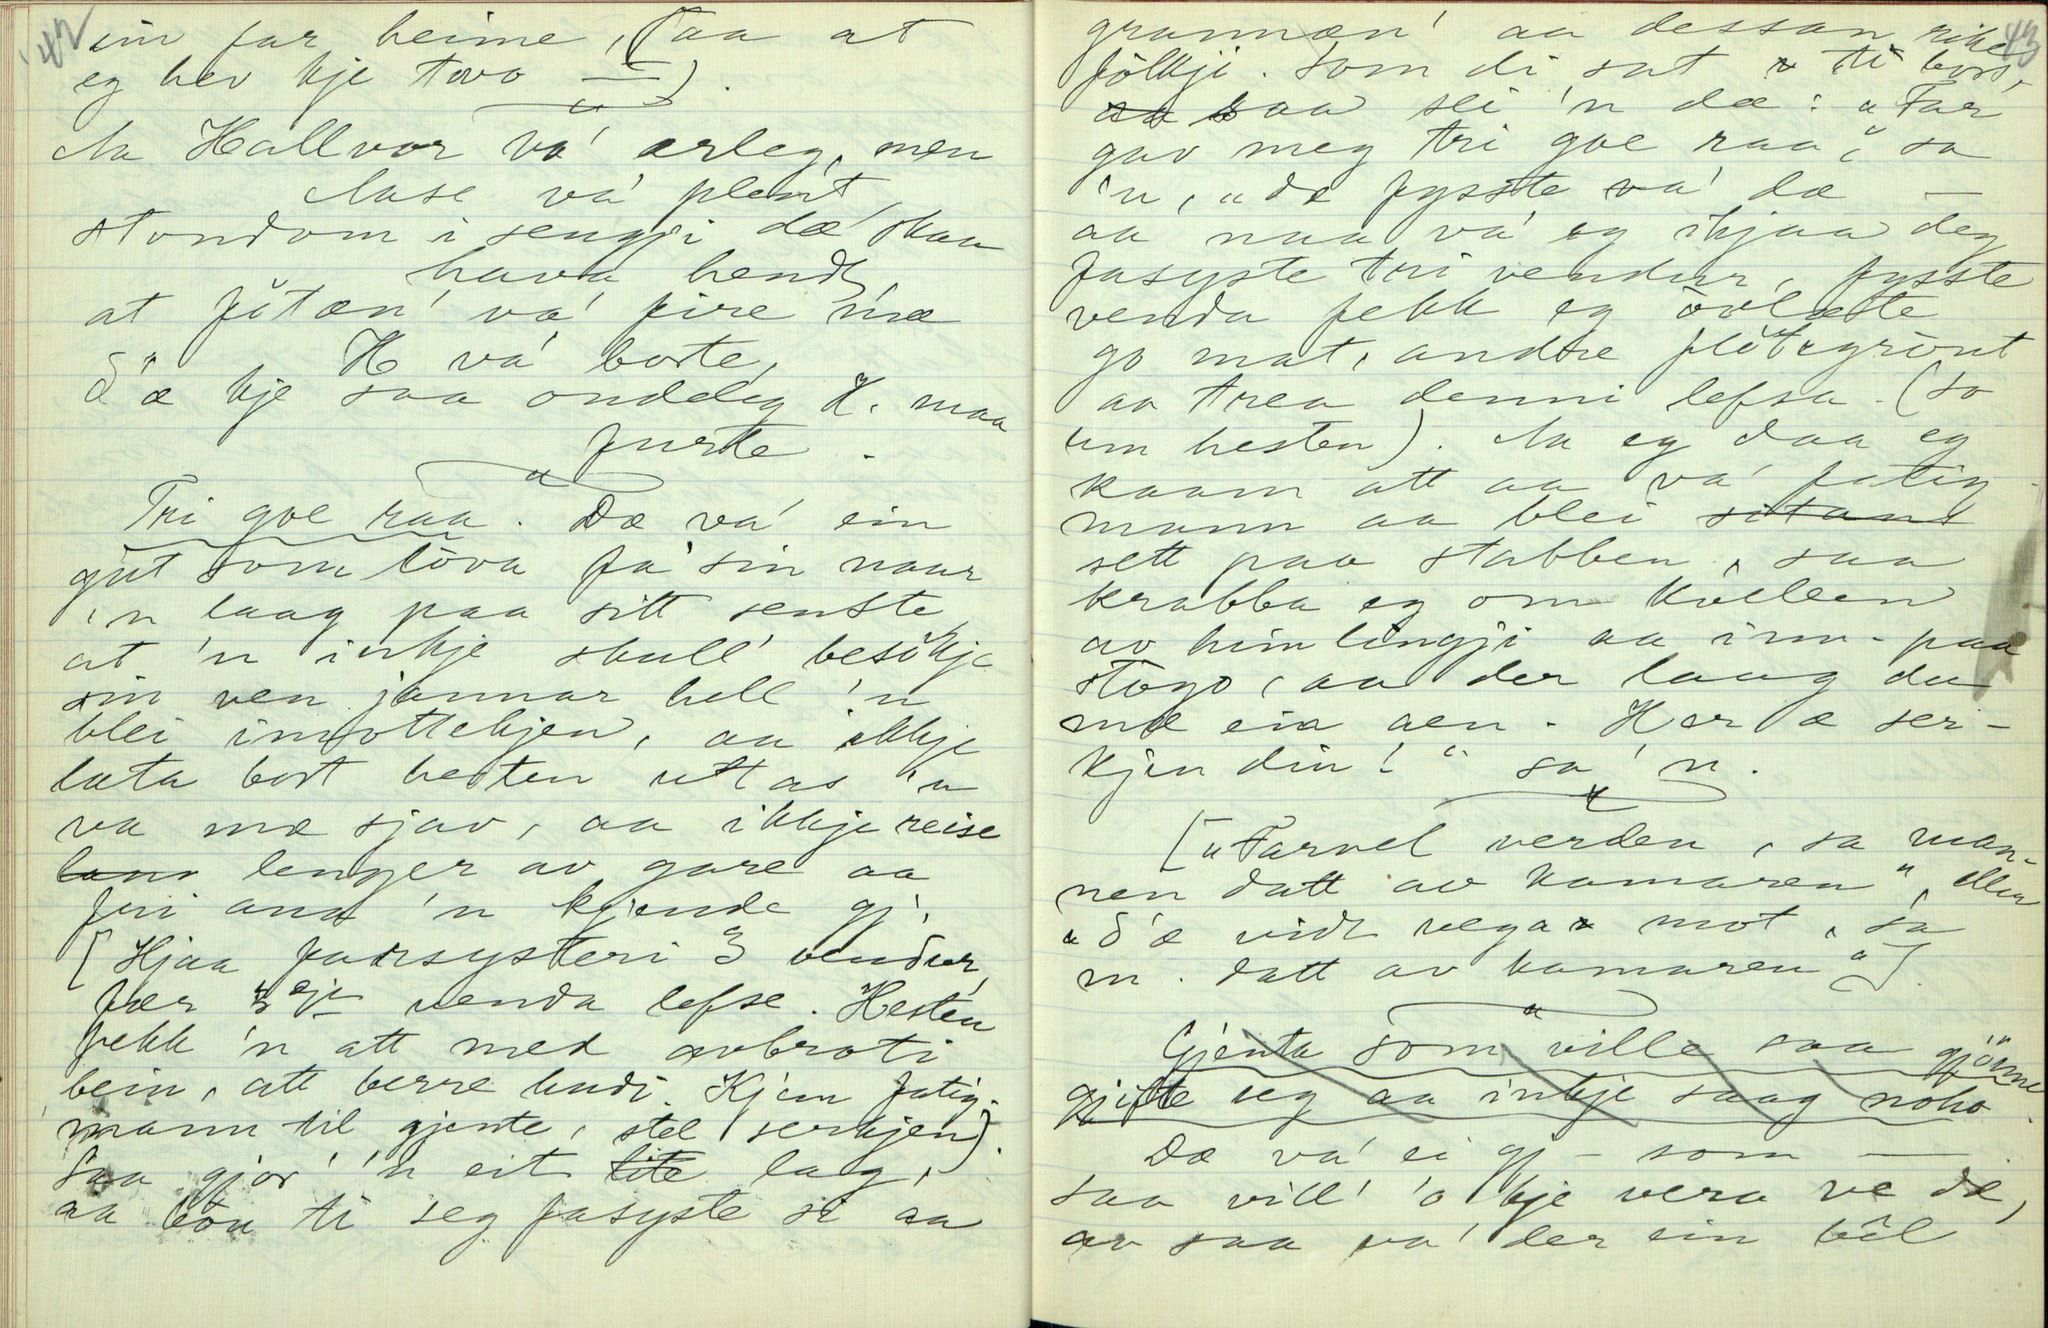 42
ein far heime, (aa at
eg hev kje tvo —).
Aa Hallvor va' ærleg, men
Aase va' pleńt
stondom i sengji dæ' skaa
hava hendt
at fötæn' va' fire mæ
H va' borte,
d'æ kje saa onddeg H. maa
furte.
Tri goe raa. Dæ va' ein
gut som lova fa' sin naar
'n laag paa sitt senste
at 'n inkje skull' besökje
sin ven jamnar hell 'n
blei imottekjen, aa ikkje
læta bort hesten utta 'n
va mæ sjav, aa ikkje reise
lenger av gare aa
fri ana 'n kjende gj.
[Hjaa farsysteri 3 vendur,
fær 3eje venda lefse. Hesten
fekk 'n att med avbroti
bein, att berre hudi. Kjem fatig-
mann til gjente, stel serkjen).
Saa gjor' 'n eit lite lag,
aa böu ti seg fasyste si aa
43
grannæn' aa dessan rike
fölkji. Som di sat ti bors,
saa sei 'n dæ: "Far
gav meg tri goe raa", sa
'n, "dæ fysste va' dæ —
aa naa va' eg ikjaa deg
fasyste tri vendur, fysste
venda fekk eg övlæte
go mat, andre flötegrönt
aa trea denni lefsa. (so
um hesten). Aa eg daa eg
kaam att aa va' fatig-
mann aa blei sitand
sett paa stabben, saa
krabba eg om kvellen
av himlingji aa inn-paa
stogo, aa der laag du
mæ ein aen. Her æ ser-
kjen din!" sa 'n.
["Farvel verden, sa man-
nen datt av kamaren", ellen
"d'æ vidt vegar mot, sa
m. datt av kamaren"]
Gjenta som ville saa gjönne
gjifte seg aa inkje saag noko.
Dæ va' ei gj — som —
saa vill' 'o kje vera ve dæ,
av saa va' der ein böl